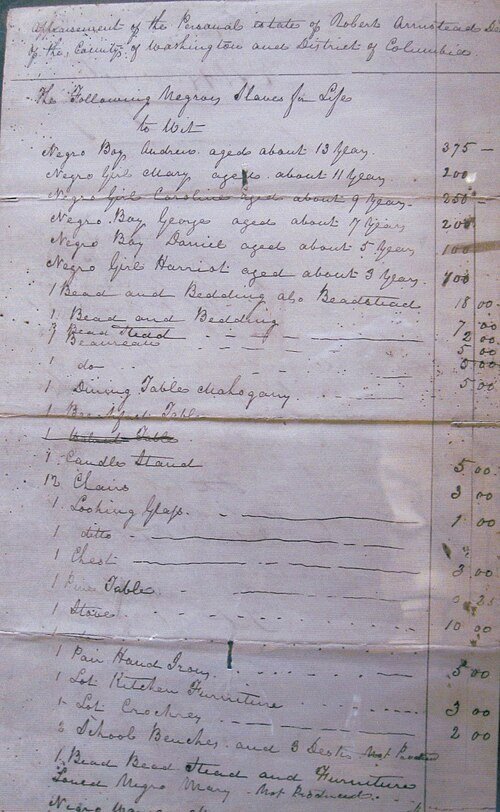 Appraisement of the Personal estate of Robert Armstead De
of the County of Washington and District of Columbia
The Following Negroes Slaves for Life
to Wit
Negro Boy Andrew aged about 13 Years 375 —
Negro Girl Mary aged about 11 Years 200
Negro Girl Caroline Aged about 9 Years 250 —
Negro Boy George aged about 7 Years 200
Negro Boy Daniel aged about 5 Years 100
Negro Girl Harriot aged about 3 Years 100
1 Bead and Bedding also Beadstead 18 00
1 Bead and Bedding 7 00
Bead Stead 2 00
Beaureau 5 00
1 do 5 00
1 Dining Table Mahogany 5 00
1 Breakfast Table
1 Table
1 Candle Stand 5 00
12 Chairs 3 00
1 Looking Glass 1 00
1 ditto
1 Chest 3 00
1 Pine Table 25
1 Stove 10 00
1 Pair Hand Irons 5 00
1 Lot Kitchen Furniture 3 00
1 Lot Crockrey 2 00
School Benches and 3 Desks Not Produced
1 Bead Bead Stead and Furniture
Negro Mary Not Produced
Negro